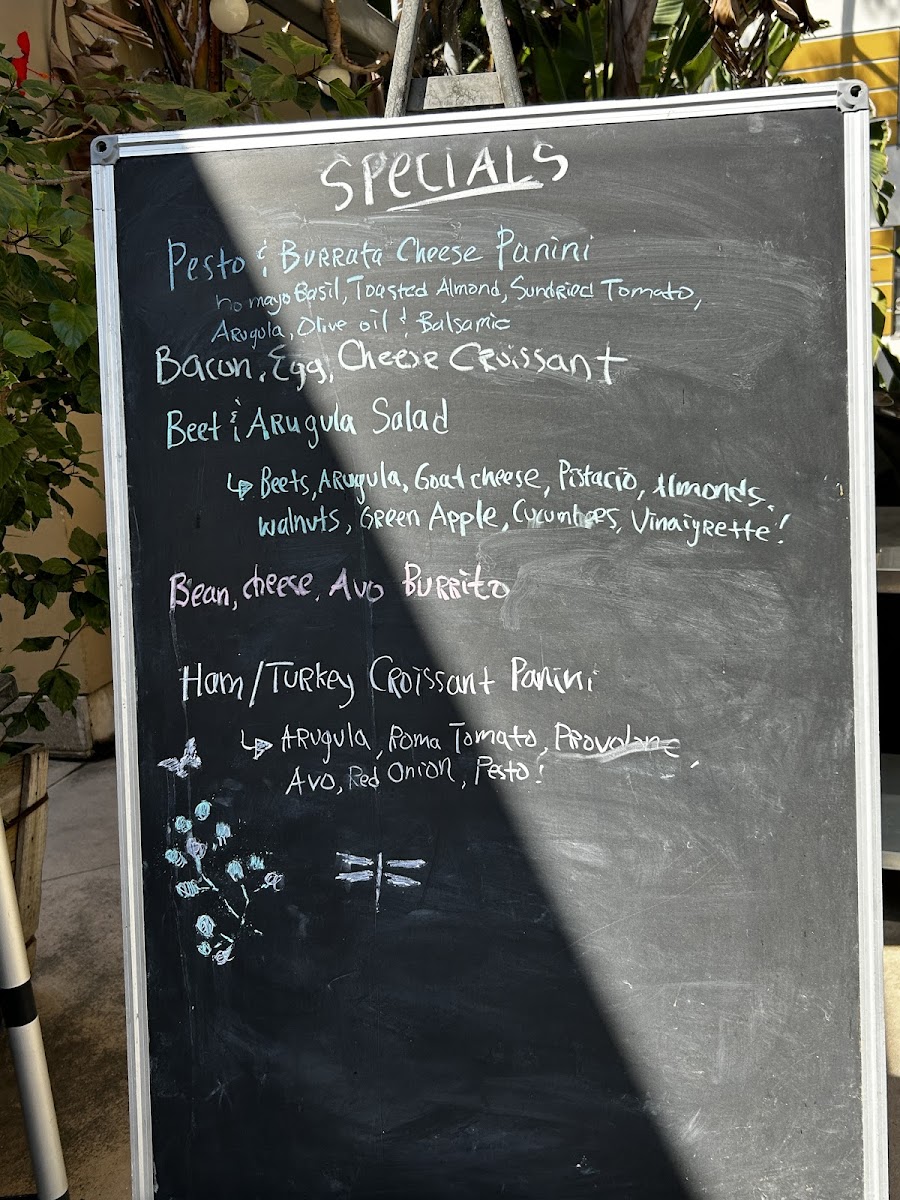 SPECIALS
Pesto & Burrata Cheese Panini
no mayo Basil, Toasted Almond, Sundried Tomato,
Arugula, Olive oil & Balsamic
Bacon, Egg, Cheese Croissant
Beet & Arugula Salad
↳ Beets, Arugula, Goat cheese, Pistacio, Almonds,
walnuts, Green Apple, Cucumbers, Vinaigrette!
Bean, cheese, Avo Burrito
Ham/Turkey Croissant Panini
↳ Arugula, Roma Tomato, Provolone,
Avo, Red Onion, Pesto!